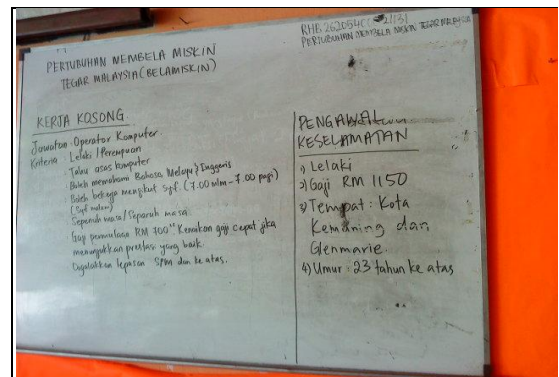 PERTUBUHAN MEMBELA MISKIN
TEGAR MALAYSIA (BELAMISKIN)
RHB 262054
PERTUBUHAN MEMBELA MISKIN TEGAR MALAYSIA
KERJA KOSONG
Jawatan : Operator Komputer
Kriteria : Lelaki / Perempuan
Tahu asas komputer
Boleh memahami Bahasa Melayu & Inggeris
Boleh bekerja mengikut syf. (7.00 mlm - 7.00 pagi)
(Syf malam)
Sepenuh masa / Separuh masa.
Gaji permulaan RM 700 Kenaikan gaji cepat jika
menunjukkan prestasi yang baik.
Digalakkan lepasan SPM dan ke atas.
PENGAWAL
KESELAMATAN
1) Lelaki
2) Gaji RM 1150
3) Tempat : Kota
Kemuning dan
Glenmarie.
4) Umur : 23 tahun ke atas